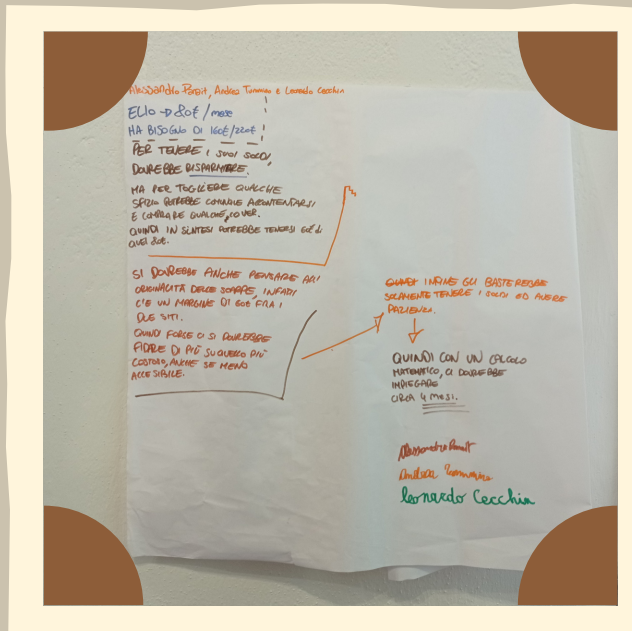 Alessandro Parait, Andrea Tommasino e Leonardo Cecchin
ELIO → 80€/mese
HA BISOGNO DI 160€/220€
PER TENERE I SUOI SOLDI,
DOVREBBE RISPARMIERE.
MA PER TOGLIERE QUALCHE
SFIZIO POTREBBE COMUNQUE ACCONTENTARSI
E COMPRARE QUALCHE COVER.
QUINDI IN SINTESI POTREBBE TENERSI 60€ di
QUEI 80€.
SI DOVREBBE ANCHE PENSARE ALL'
ORIGINALITÀ DELLE SCARPE, INFATTI
C'E UN MARGINE DI 60€ FRA I
DUE SITI.
QUINDI FORSE CI SI DOVREBBE
FIDARE DI PIÙ SU QUELLO PIÙ
COSTOSO, ANCHE SE MENO
ACCESIBILE.
QUINDI INFINE GLI BASTEREBBE
SOLAMENTE TENERE I SOLDI ED AVERE
PAZIENZA.
QUINDI CON UN CALCOLO
MATEMATICO, CI DOVREBBE
IMPIEGARE
CIRCA 4 MESI.
Alessandro
Andrea
Leonardo Cecchin